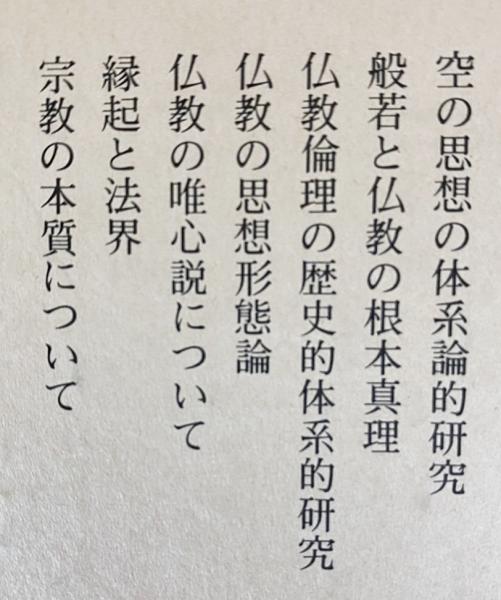 空の思想の体系論的研究
般若と仏教の根本真理
仏教倫理の歴史的体系的研究
仏教の思想形態論
仏教の唯心説について
縁起と法界
宗教の本質について